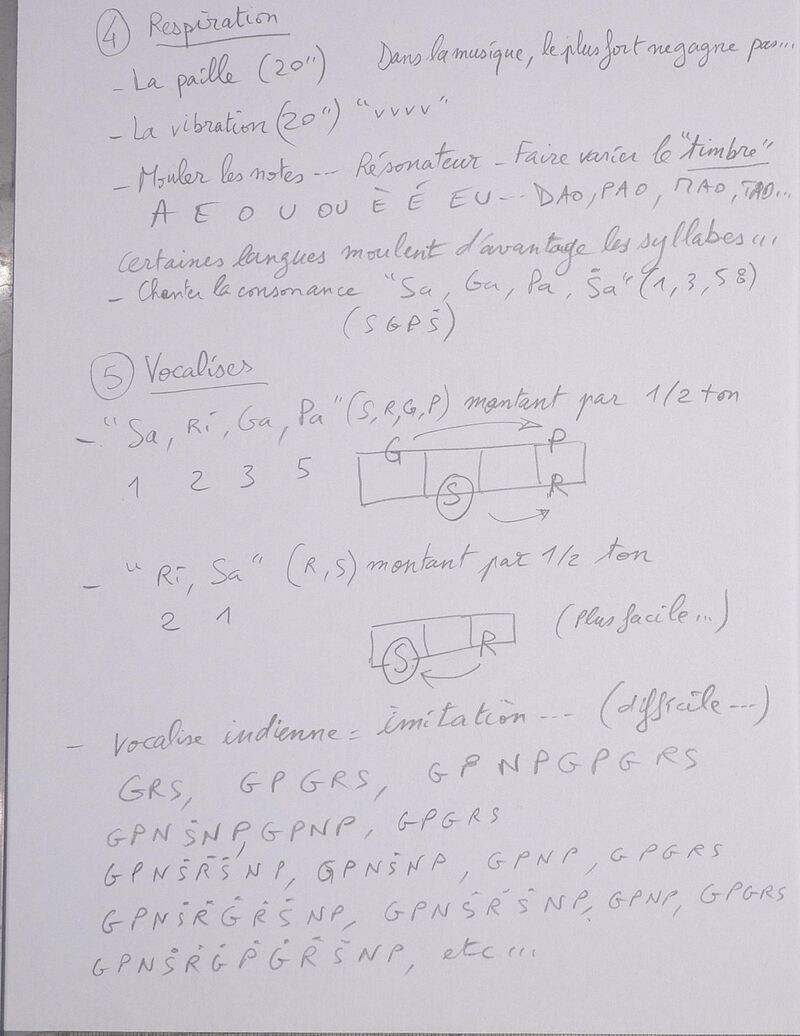 ④ Respiration
- La paille (20") Dans la musique, le plus fort ne gagne pas...
- La vibration (20") "vvvv"
- Mouler les notes --- Résonateur - Faire varier le "timbre"
A E O U OU È É EU --- DAO, PAO, MAO, TAO...
Certaines langues moulent d'avantage les syllabes...
- Chanter la consonance "Sa, Ga, Pa, Ṡa" (1, 3, 5 8)
(S G P Ṡ)
⑤ Vocalises
- "Sa, Ri, Ga, Pa" (S, R, G, P) montant par 1/2 ton
1 2 3 5
G P
S R
- "Ri, Sa" (R, S) montant par 1/2 ton
2 1
(Plus facile...)
S R
- Vocalise indienne = imitation --- (difficile ---)
GRS, GPGRS, GPNPGPGRS
GPNṠNP, GPNP, GPGRS
GPNṠṘṠNP, GPNṠNP, GPNP, GPGRS
GPNṠṘĠṘṠNP, GPNṠṘṠNP, GPNP, GPGRS
GPNṠṘĠṖĠṘṠNP, etc...